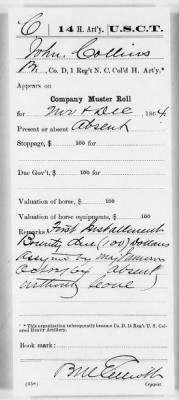 C | 14 H. Art'y. | U.S.C.T.
John Collins
Co. D, 1 Reg't N. C. Col'd H. Art'y.*
Appears on
Company Muster Roll
for Nov & Dec, 1864.
Present or absent Absent
Stoppage, $ 100 for
Due Gov't, $ 100 for
Valuation of horse, $ 100
Valuation of horse equipments, $ 100
Remarks: First Installment
Bounty due (100) Dollars
absent
without leave
* This organization subsequently became Co. D, 14 Reg't U. S. Colored Heavy Artillery.
Book mark:
(358) Copyist.